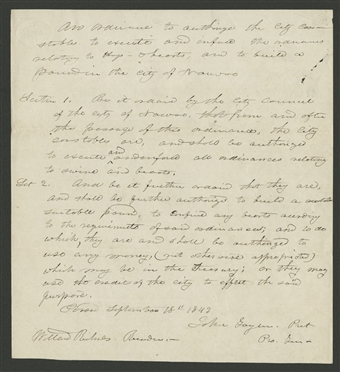 An ordinance to authorize the City con-
stables to execute and enforce the ordinances
relating to Hogs & beasts, and to build a
Pound in the city of Nauvoo
Section 1. Be it ordained by the City Council
of the city of Nauvoo. that from and after
the passage of this ordinance, the City
constables are, and shall be authorized
to execute and enforce all ordinances relating
to swine and beasts.
Sec 2. And be it further ordained that they are,
and shall be further authorized to build a
suitable pound, to confine any beasts according
to the requirements of said ordinances; and to do
which, they are and shall be authorized to
use any money, (not otherwise appropriated)
which may be in the Treasury; or they may
use the credit of the city to effect the said
purpose.
September 18th 1843
John Prest
Willard Richards. Recorder.— Pro. Tem—